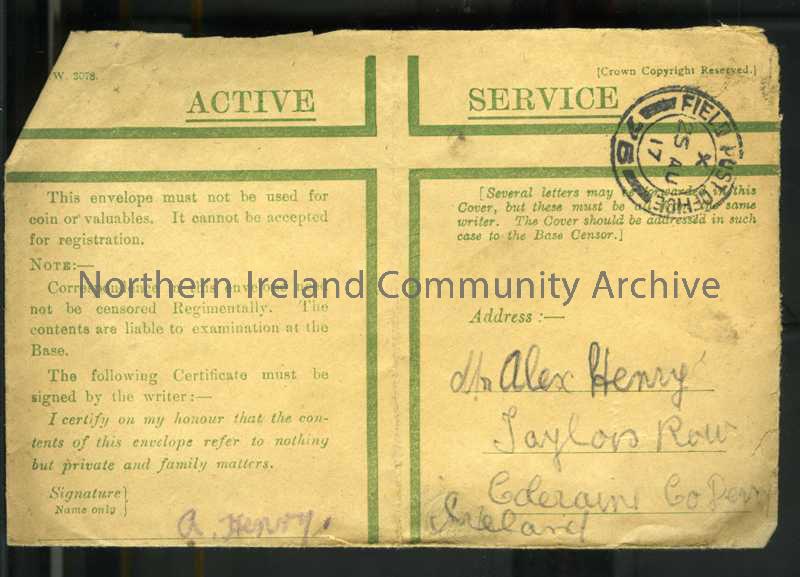 W. 3078.
[Crown Copyright Reserved.]
ACTIVE SERVICE
FIELD POST OFFICE
X
25 AU
17
This envelope must not be used for
coin or valuables. It cannot be accepted
for registration.
NOTE:—
Correspondence in this envelope need
not be censored Regimentally. The
contents are liable to examination at the
Base.
The following Certificate must be
signed by the writer:—
I certify on my honour that the con-
tents of this envelope refer to nothing
but private and family matters.
Signature
Name only
A. Henry.
[Several letters may be forwarded in this
Cover, but these must be all from the same
writer. The Cover should be addressed in such
case to the Base Censor.]
Address :—
Alex Henry
Taylors Row
Coleraine Co Derry
Ireland
Northern Ireland Community Archive